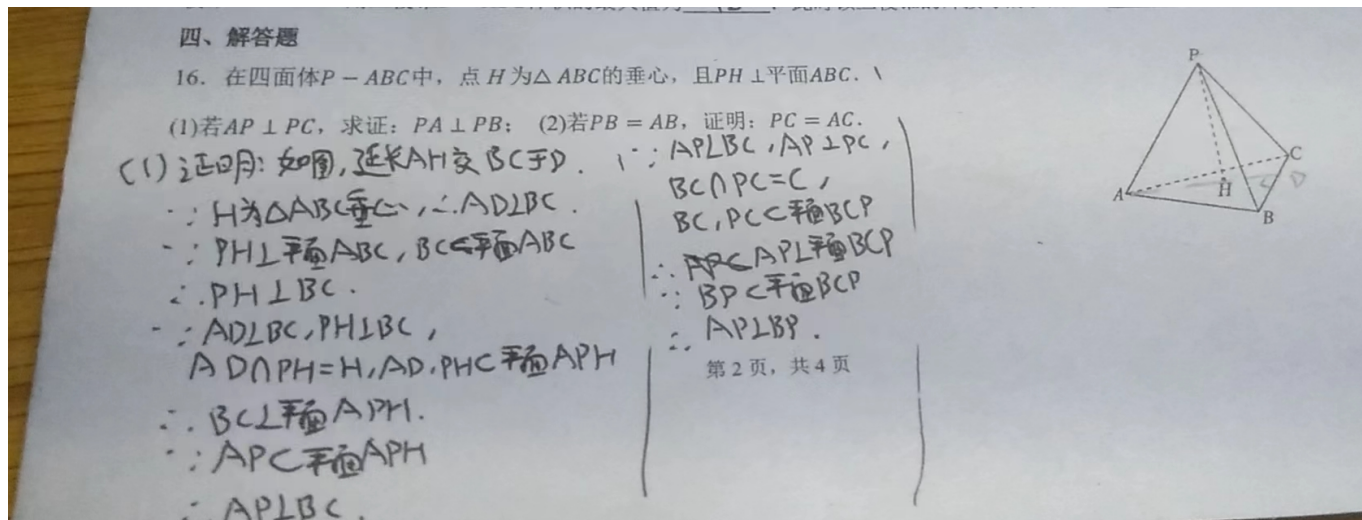 四、解答题
16. 在四面体P－ABC中，点 H 为△ ABC的垂心，且PH ⊥平面ABC.
(1)若AP ⊥ PC，求证：PA ⊥ PB； (2)若PB = AB，证明：PC = AC.
(1)证明：如图，延长AH交BC于D.
∵ H为△ABC垂心，∴AD⊥BC.
∵ PH⊥平面ABC，BC⊂平面ABC
∴PH⊥BC.
∵ AD⊥BC，PH⊥BC，
AD∩PH=H，AD，PH⊂平面APH
∴ BC⊥平面APH.
∵ AP⊂平面APH
∴ AP⊥BC.
∵ AP⊥BC，AP⊥PC，
BC∩PC=C，
BC，PC⊂平面BCP
∴ AP⊥平面BCP
∵ BP⊂平面BCP
∴ AP⊥BP.
第 2 页，共 4 页
P
C
A
H
D
B